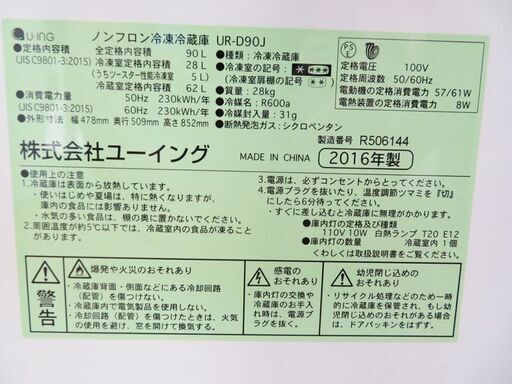 U-ING ノンフロン冷凍冷蔵庫 UR-D90J
●定格内容積 全定格内容積 90 L
(JIS C9801-3:2015) 冷凍室定格内容積 28 L
(うちツースター性能冷凍室 5 L)
冷蔵室定格内容積 62 L
●消費電力量 50Hz 230kWh/年
(JIS C9801-3:2015) 60Hz 230kWh/年
●外形寸法 幅 478mm 奥行 509mm 高さ 852mm
●種類:冷凍冷蔵庫
●冷凍室の記号:
(冷凍室扉棚の記号: )
●質量:28kg
●冷媒名:R600a
●冷媒封入量:31g
●断熱発泡ガス:シクロペンタン
PSE
定格電圧 100V
定格周波数 50/60Hz
電動機の定格消費電力 57/61W
電熱装置の定格消費電力 8W
製造番号 R506144
株式会社ユーイング MADE IN CHINA 2016年製
●使用上の注意
1.冷蔵庫は表面から放熱しています。
・使いはじめや夏場は、特に熱くなりますが、
庫内の食品には影響ありません。
・水気の多い食品は、棚の奥に置かないでください。
2.周囲温度が約5℃以下では、冷蔵室の食品が凍ること
があります。
3.電源は、必ずコンセントからとってください。
4.電源プラグを抜いたり、温度調節ツマミを『切』
にしたら6分待ってください。
・すぐに差し込むと冷蔵庫が故障することがあります。
●庫内灯の定格及び種類
110V 10W 白熱ランプ T20 E12
●庫内灯の数量 冷蔵室内 1個
くわしくは取扱説明書をご覧ください。
警告
爆発や火災のおそれあり
・冷蔵庫背面・側面などにある冷却回路
(配管)を傷つけない。
・冷蔵庫内で電気製品を使用しない。
・冷却回路(配管)を傷つけたときは、火気
の使用を避け、窓を開け換気する。
感電の
おそれあり
・庫内灯の交換や
冷蔵庫のお手入
れ時は、電源プ
ラグを抜く。
幼児閉じ込めの
おそれあり
・リサイクル処理などのため一時
的に冷蔵庫を保管するとき、
幼児閉じ込めが懸念される場合
は、ドアパッキンをはずす。